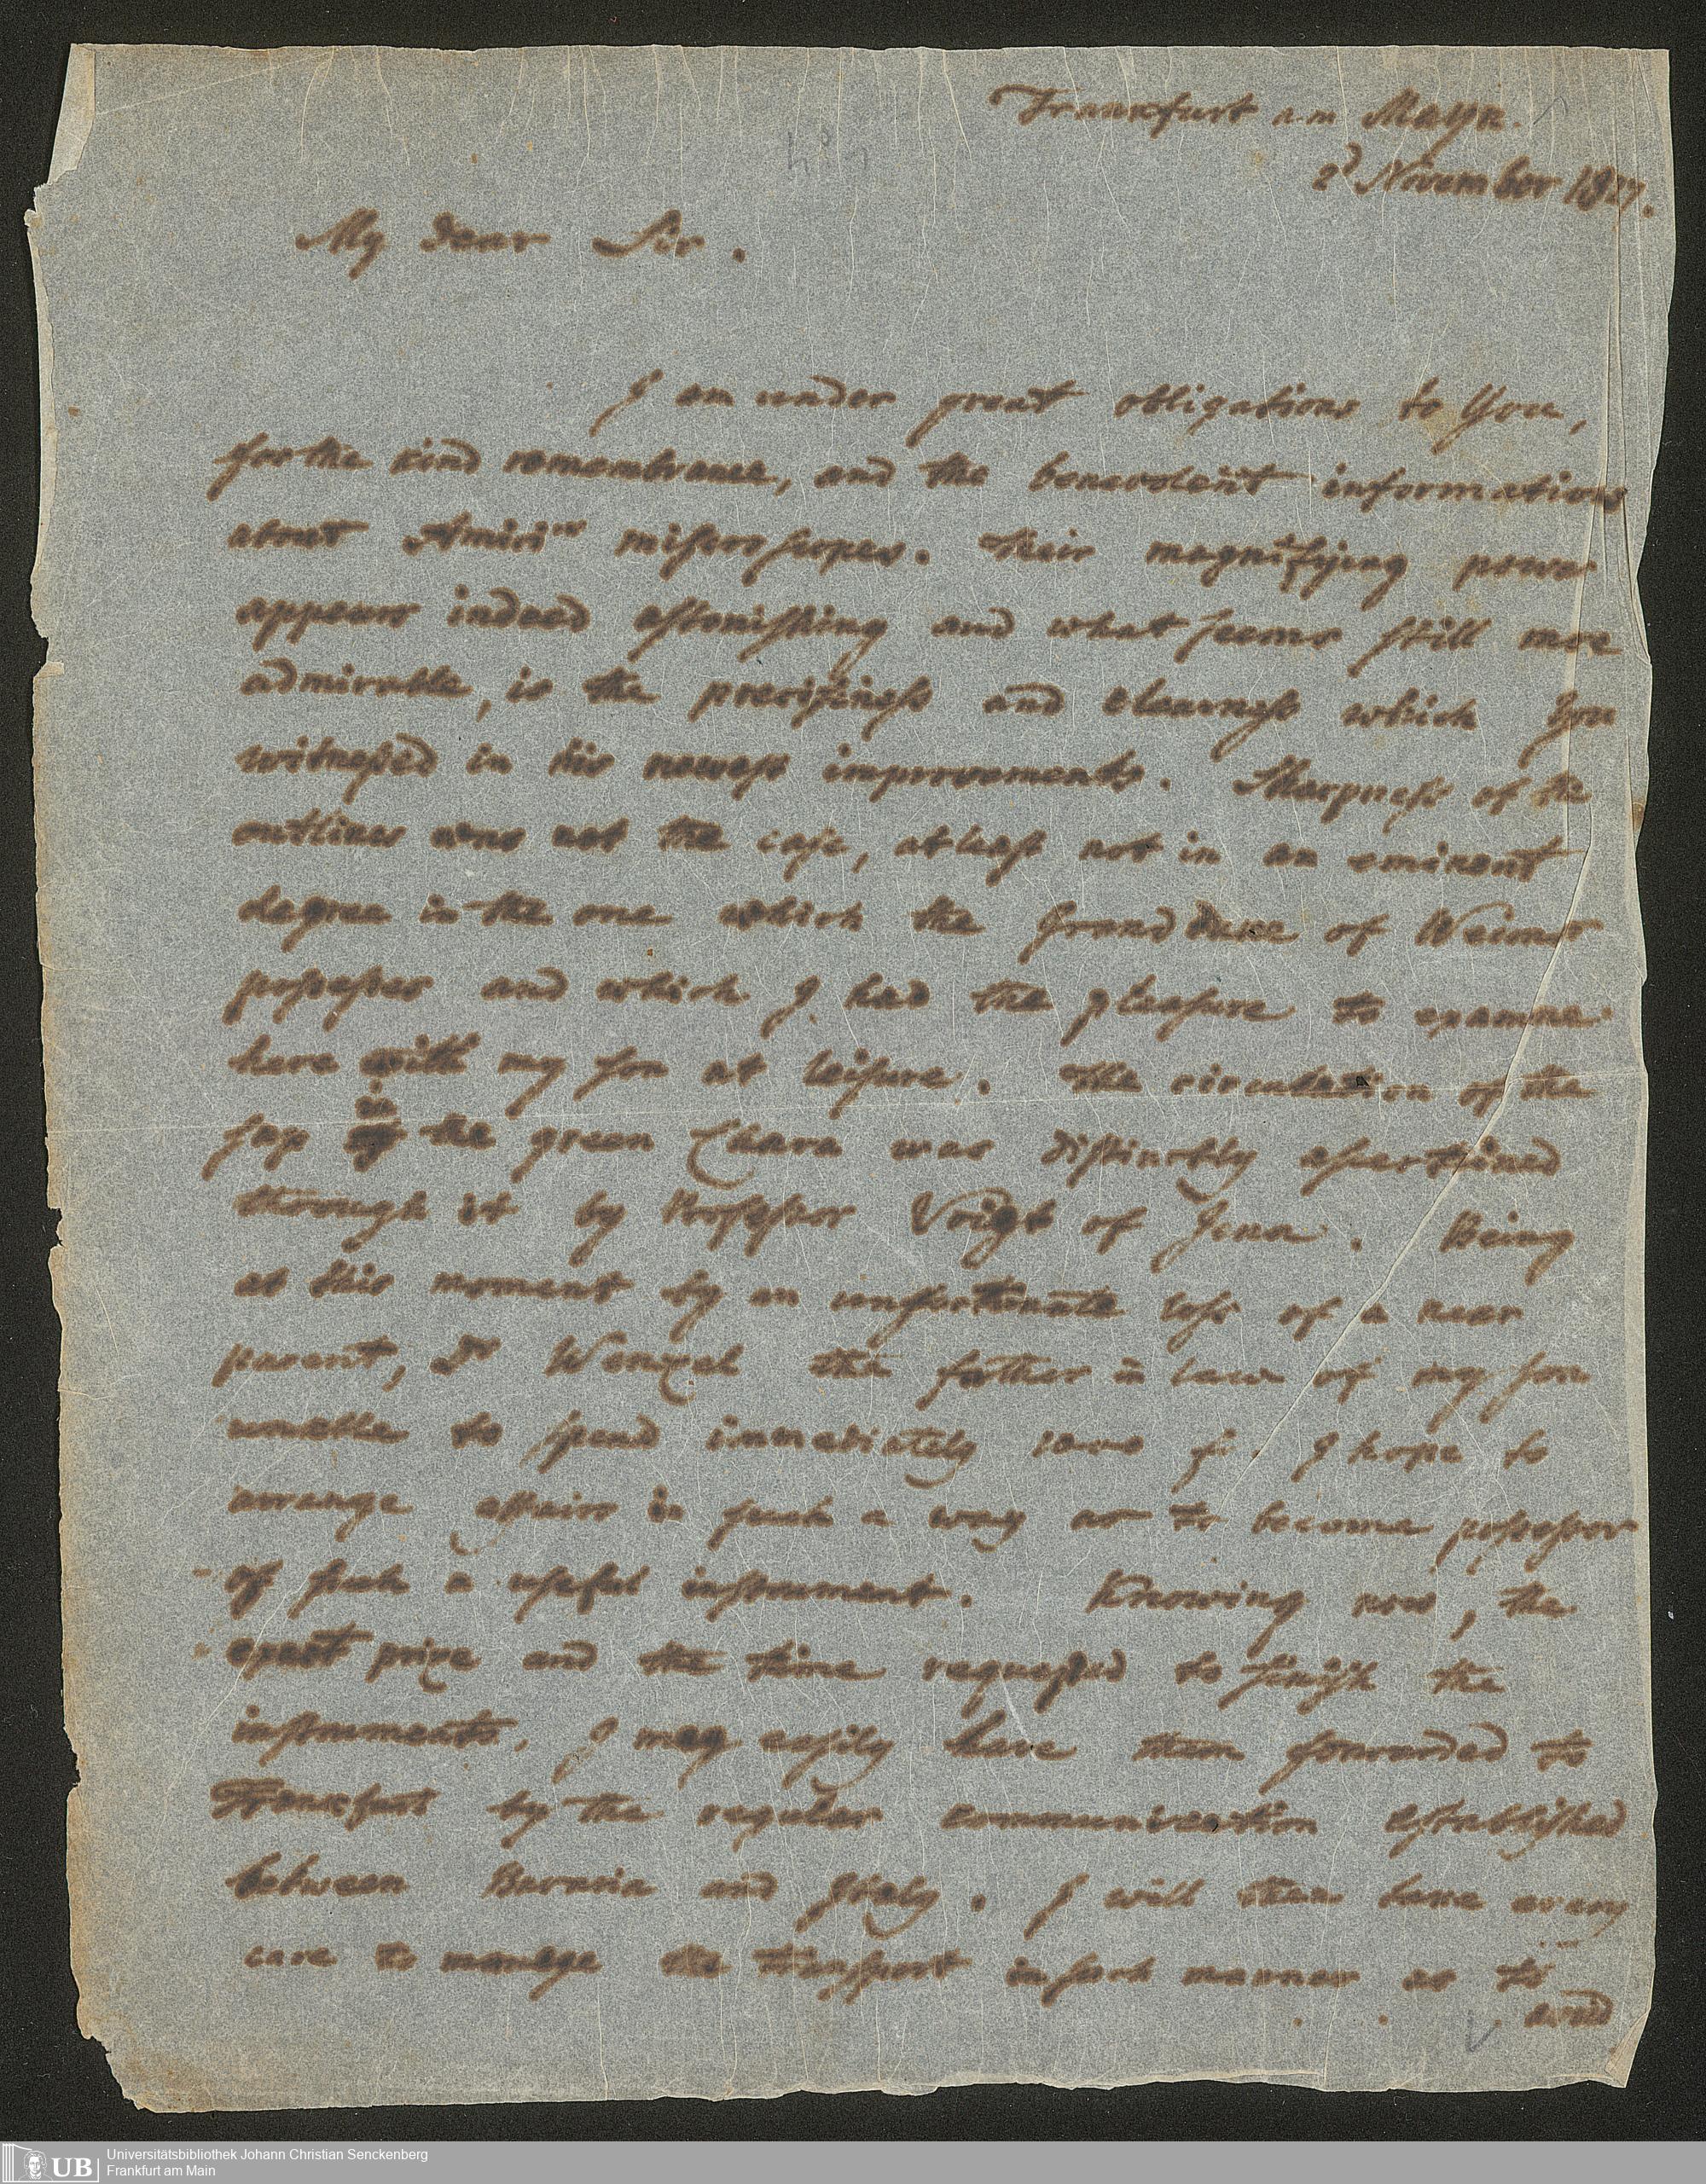 Frankfurt am Mayn.
2d November 1827.
My dear Sir.
I am under great obligations to You,
for the kind remembrance, and the benevolent informations
about Amici's miſcroſcopes. Their magnifying power
appears indeed aſtoniſhing and what ſeems ſtill more
admirable, is the preciſeneſs and clearneſs which You
witneſſed in his neweſt improvements. Sharpneſs of the
outlines was not the caſe, at leaſt not in an eminent
degree in the one which the Grand Duke of Weimar
poſſeſſes and which I had the pleaſure to examine
here with my ſon at leiſure. The circulation of the
ſap in the green Chara was diſtinctly aſcertained
through it by Profeſſor Voigt of Jena. Being
at this moment by an unfortunate loſs of a near
parent, Dr Wenzel the father in law of my ſon
unable to ſpend immediately 1000 f. I hope to
arrange affairs in ſuch a way as to become poſſeſſor
of ſuch a uſeful inſtrument. Knowing now, the
exact prize and the time requeſted to finiſh the
inſtruments, I may eaſily have them forwarded to
Frankfurt by the regular communication eſtabliſhed
between Bavaria and Italy. I will then take every
care to manage the tranſport in ſuch manner as to
avoid
UB
Universitätsbibliothek Johann Christian Senckenberg
Frankfurt am Main